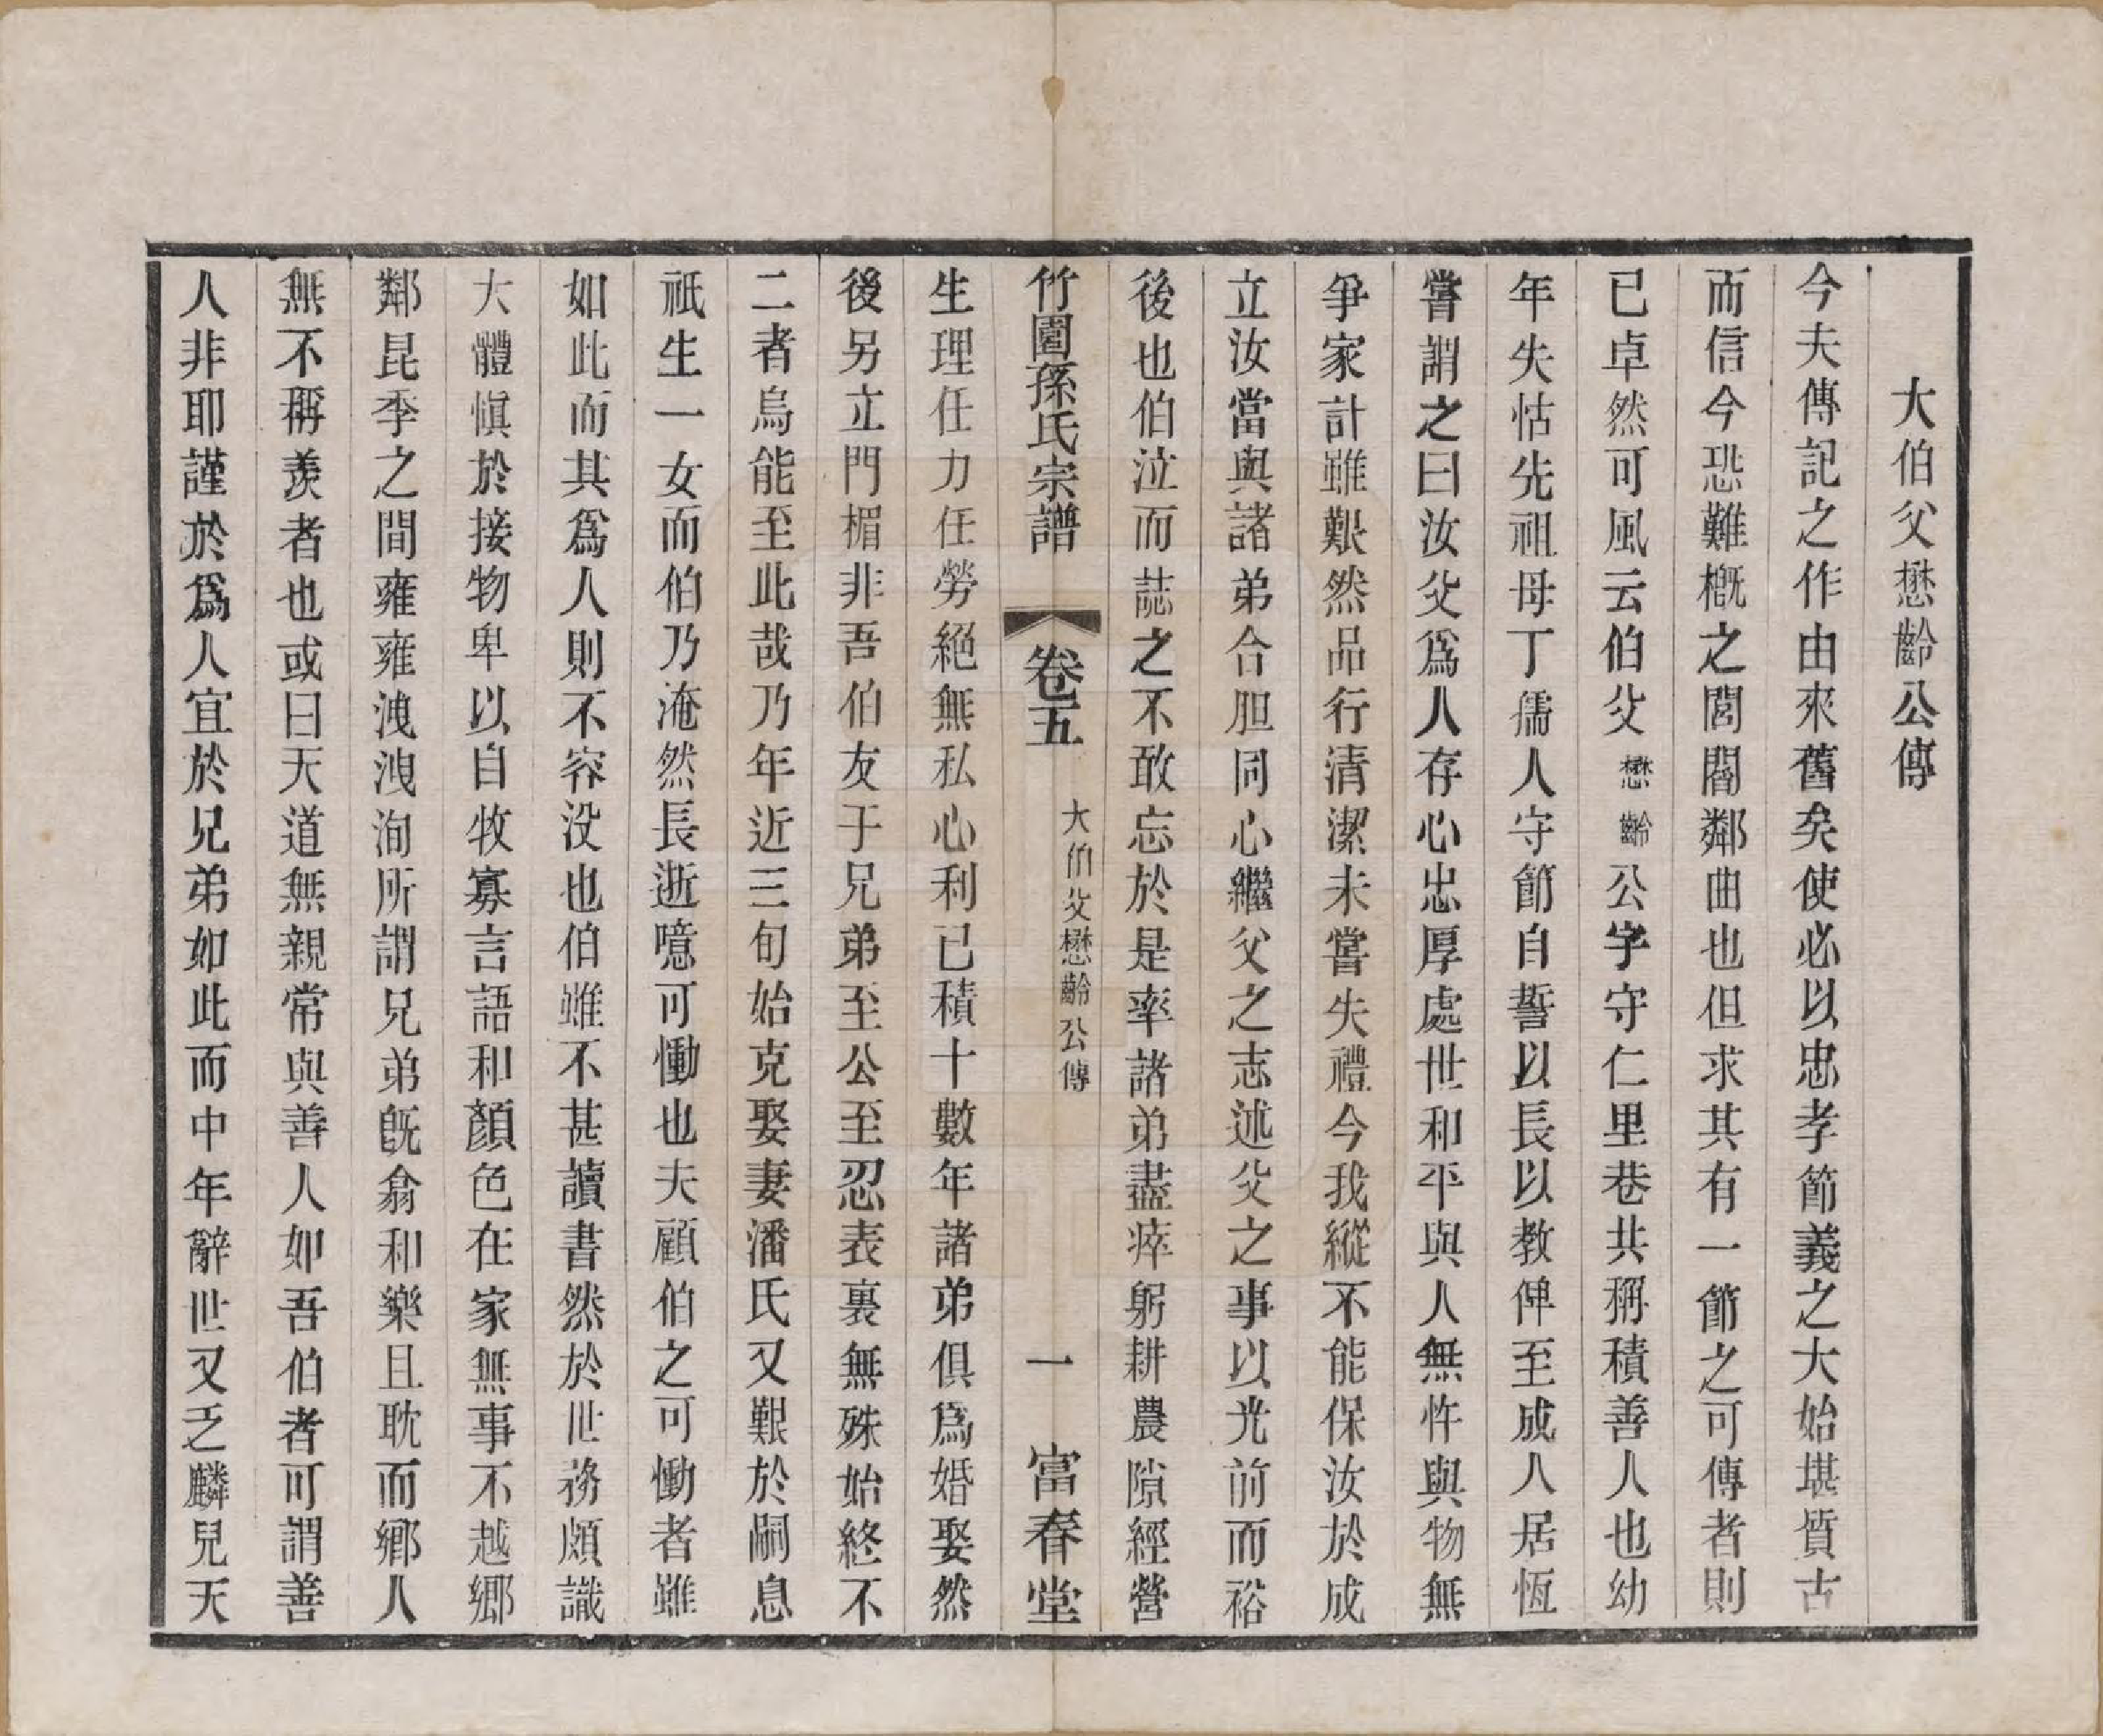 大伯父懋齡公傳
今夫傳記之作由來舊矣使必以忠孝節義之大始堪質古
而信今恐難概之閭閻鄰曲也但求其有一節之可傳者則
已卓然可風云伯父懋齡公字守仁里巷共稱積善人也幼
年失怙先祖母丁孺人守節自誓以長以教俾至成人居恆
嘗謂之曰汝父爲人存心忠厚處世和平與人無忤與物無
爭家計雖艱然品行清潔未嘗失禮今我縱不能保汝於成
立汝當與諸弟合胆同心繼父之志述父之事以光前而裕
後也伯泣而誌之不敢忘於是率諸弟盡瘁躬耕農隙經營
竹園孫氏宗譜 卷五 大伯父懋齡公傳 一 富春堂
生理任力任勞絕無私心利已積十數年諸弟俱爲婚娶然
後另立門楣非吾伯友于兄弟至公至忍表裏無殊始終不
二者烏能至此哉乃年近三旬始克娶妻潘氏又艱於嗣息
祇生一女而伯乃淹然長逝噫可慟也夫顧伯之可慟者雖
如此而其爲人則不容没也伯雖不甚讀書然於世務頗識
大體愼於接物卑以自牧寡言語和顏色在家無事不越鄉
鄰昆季之間雍雍洩洩洵所謂兄弟旣翕和樂且耽而鄉人
無不稱羨者也或曰天道無親常與善人如吾伯者可謂善
人非耶謹於爲人宜於兄弟如此而中年辭世又乏麟兒天